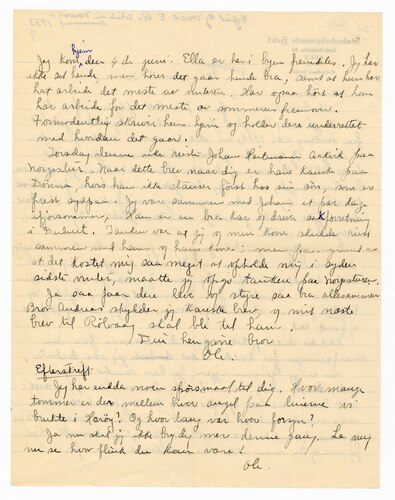 Jeg kom hjem den 4 de juni. Ella er her i byen fremdeles. Jeg har
ikke set hende men hører det gaar hende bra, samt at hun har
hat arbeide det meste av vinteren. Har ogsaa hørt at hun
har arbeide for det meste av sommeren fremover.
Formodentlig skriver hun hjem og holder dere underrettet
med hvordan det gaar.
Torsdag denne uke reiste Johan Hartmann Aakvik paa
norgestur. Naar dette brev naar dig er han kanske paa
Dønna, hvis han ikke stanser først hos sin søn, som er
prest sydpaa. Jeg var sammen med Johan et par dage
iforsommer. Han er en bra kar og driver sakforetning
i Duluth. Tanken var at jeg og min kone skulde reist
sammen med ham og hans kone: men paa grund av
at det kostet mig saa meget at opholde mig i syden
sidste vinter, maatte jeg opgi tanken paa norgesturen.
Ja saa faar dere leve og styre saa bra allesammen
Bror Andreas skylder jeg kanske brev og mit næste
brev til Rölvaag skal bli til ham.
Din hengivne bror
Ole.
Efterskrift
Jeg har endda noen spørsmaal til dig. Hvor mange
tommer er der mellem hver angel paa linerne vi
brukte i Herøy? Og hvor lang var hver forsyn?
Ja nu skal jeg ikke bry dig mer denne gang. La mig
nu se hvor flink du kan være!
Ole.